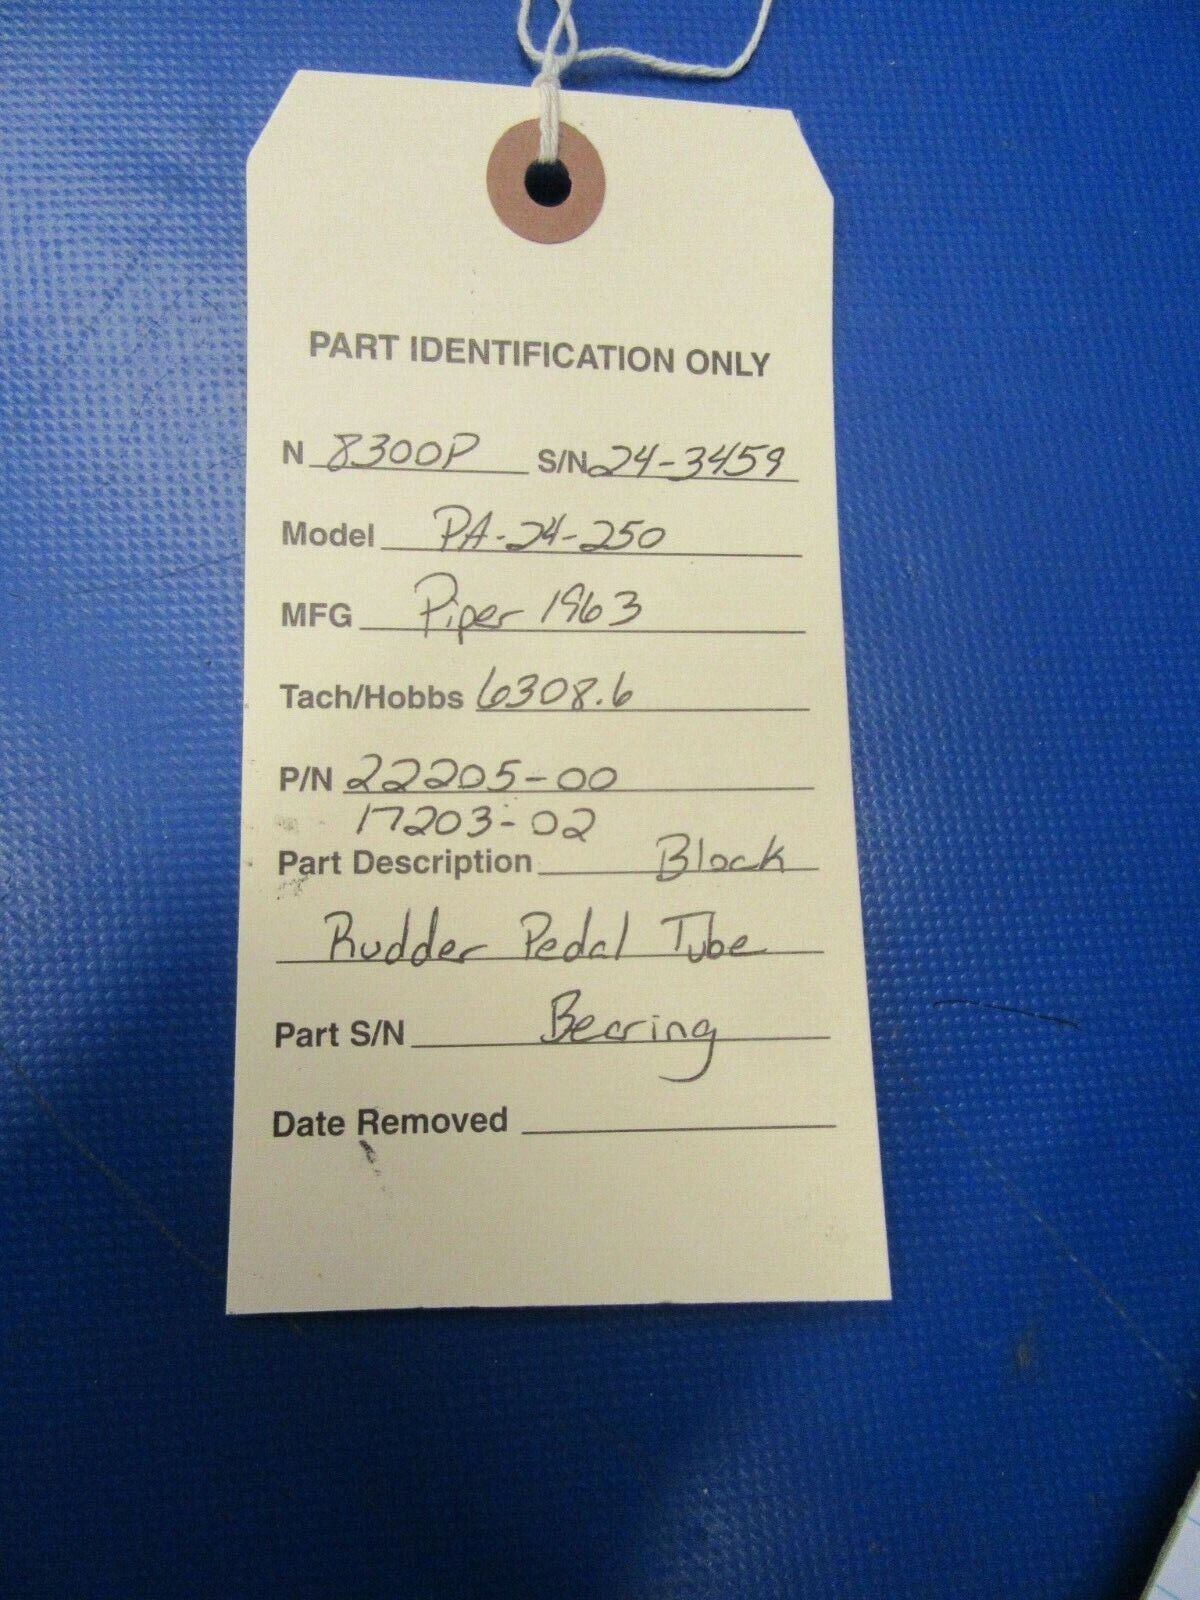 PART IDENTIFICATION ONLY
N 8300P S/N 24-3459
Model PA-24-250
MFG Piper 1963
Tach/Hobbs 6308.6
P/N 22205-00
17203-02
Part Description Block
Rudder Pedal Tube
Part S/N Bearing
Date Removed